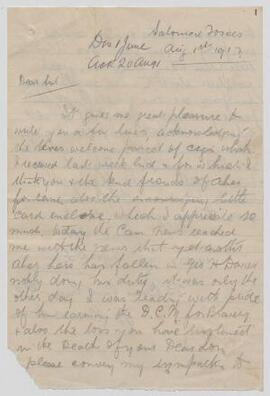 1
Salonica Forces
Aug 1st 1917
Dear Sir
It gives me great pleasure to
write you a few lines, acknowledging
the ever welcome parcel of
received last week end & for which I
thank you & the kind friends of Aber
for same also the encouraging little
Card enclose, which I appreciate so
much, today the Cam News reached
me with the news that yet another
Aber hero has fallen in Geo H Davies
nobly doing his duty, it was only the
other day I was reading with pride
of him earning the D.C.M. for bravery
& also the loss you have
in the Death of your Dear Son
please convey my sympathy to